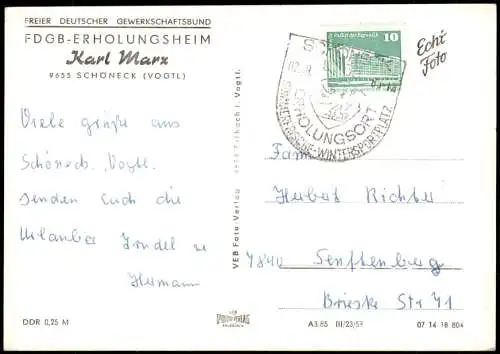 FREIER DEUTSCHER GEWERKSCHAFTSBUND
FDGB-ERHOLUNGSHEIM
Karl Marx
9655 SCHÖNECK (VOGTL)
Viele Grüße aus
Schöneck, Vogtl.
senden Euch die
Urlauber
Hermann
DDR 0,25 M
VEB Foto Verlag
10
Echt
Foto
ERHOLUNGSORT
WINTERSPORTPLATZ
Fam.
Herbert Richter
7840 Senftenberg
Brieske Str 71
A3.85 III/23/53
07 14 18 804